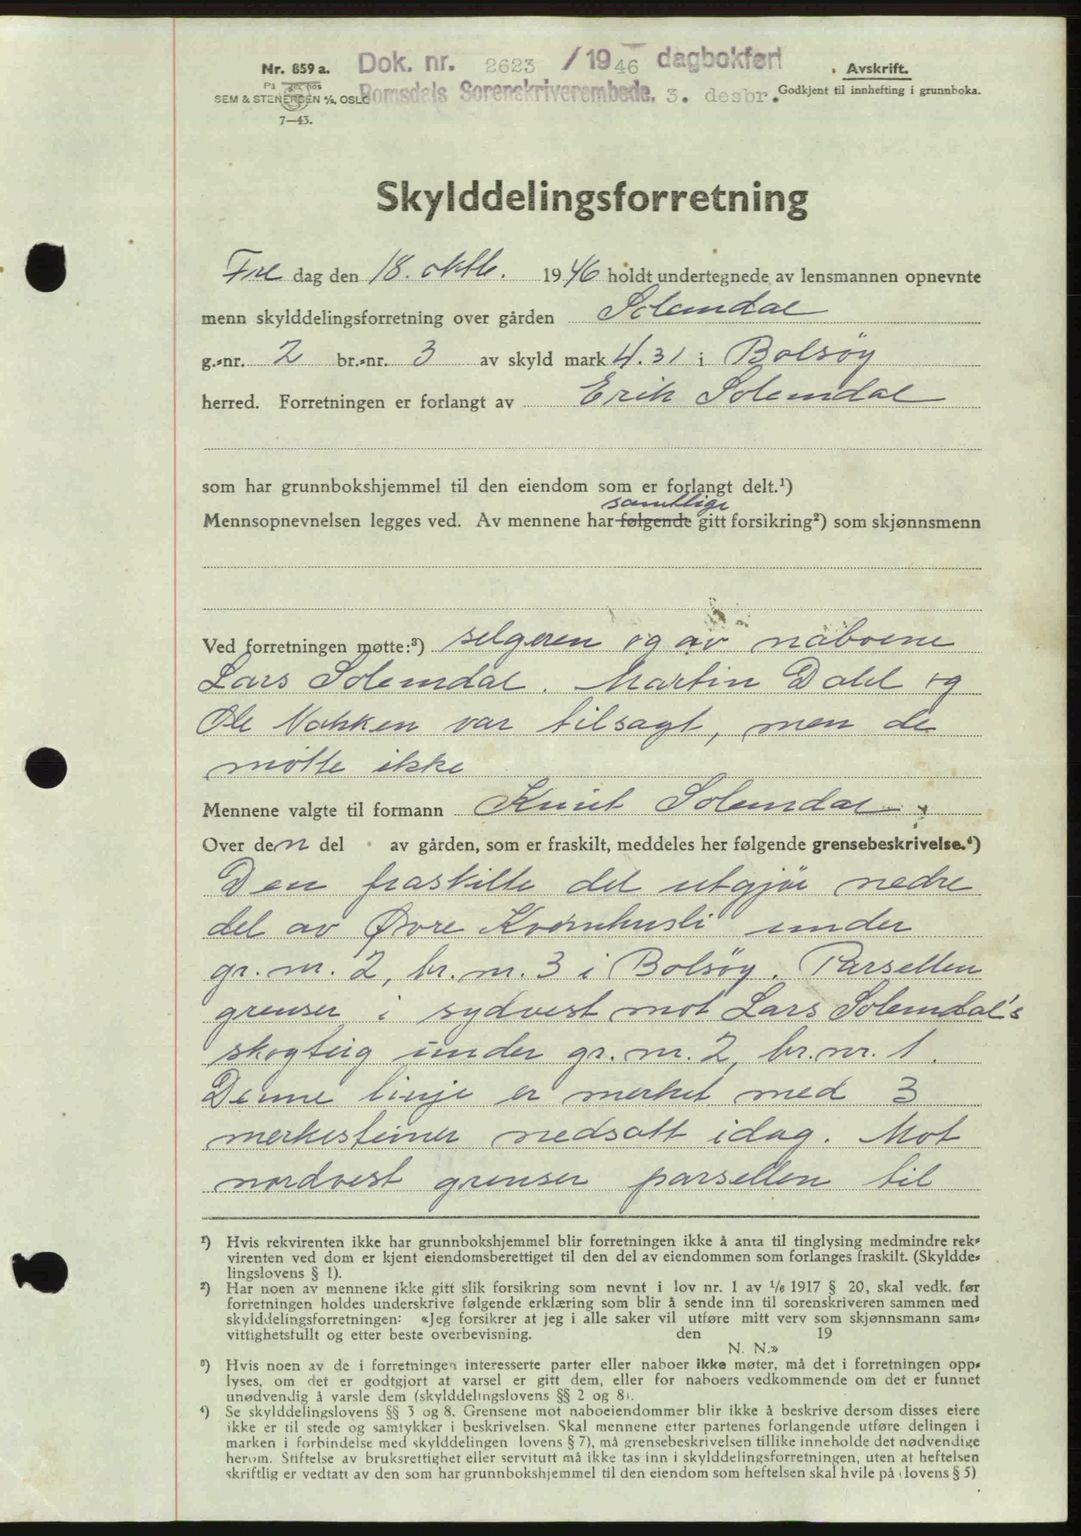 Nr. 859 a.
På lager hos
SEM & STENERSEN A/S, OSLO
7—43.
Dok. nr. 2623 / 1946 dagbokført
Romsdals Sorenskriverembede. 3. desbr.
Avskrift.
Godkjent til innhefting i grunnboka.
Skylddelingsforretning
Fre dag den 18. oktb. 1946 holdt undertegnede av lensmannen opnevnte
menn skylddelingsforretning over gården Solemdal
g.-nr. 2 br.-nr. 3 av skyld mark 4.31 i Bolsøy
herred. Forretningen er forlangt av Erik Solemdal
som har grunnbokshjemmel til den eiendom som er forlangt delt.¹)
samtlige
Mennsopnevnelsen legges ved. Av mennene har følgende gitt forsikring²) som skjønnsmenn
Ved forretningen møtte:³) selgeren og av naboene
Lars Solemdal. Martin Dahl og
Ole Nakken var tilsagt, men de
møtte ikke
Mennene valgte til formann Knut Solemdal
Over den del av gården, som er fraskilt, meddeles her følgende grensebeskrivelse.⁴)
Den fraskilte del utgjør nedre
del av Øvre Kvernhusli under
gr. nr. 2, br. nr. 3 i Bolsøy. Parsellen
grenser i sydvest mot Lars Solemdal's
skogteig under gr. nr. 2, br. nr. 1.
Denne linje er merket med 3
merkesteiner nedsatt idag. Mot
nordvest grenser parsellen til
¹) Hvis rekvirenten ikke har grunnbokshjemmel blir forretningen ikke å anta til tinglysing medmindre rek-
virenten ved dom er kjent eiendomsberettiget til den del av eiendommen som forlanges fraskilt. (Skyldde-
lingslovens § 1).
²) Har noen av mennene ikke gitt slik forsikring som nevnt i lov nr. 1 av 1/6 1917 § 20, skal vedk. før
forretningen holdes underskrive følgende erklæring som blir å sende inn til sorenskriveren sammen med
skylddelingsforretningen: «Jeg forsikrer at jeg i alle saker vil utføre mitt verv som skjønnsmann sam-
vittighetsfullt og etter beste overbevisning. den 19
N. N.»
³) Hvis noen av de i forretningen interesserte parter eller naboer ikke møter, må det i forretningen opp-
lyses, om det er godtgjort at varsel er gitt dem, eller for naboers vedkommende om det er funnet
unødvendig å varsle dem (skylddelingslovens §§ 2 og 8).
⁴) Se skylddelingslovens §§ 3 og 8. Grensene mot naboeiendommer blir ikke å beskrive dersom disses eiere
ikke er til stede og samtykker i beskrivelsen. Skal mennene etter partenes forlangende utføre delingen i
marken i forbindelse med skylddelingen lovens § 7), må grensebeskrivelsen tillike inneholde det nødvendige
herom. Stiftelse av bruksrettighet eller servitutt må ikke tas inn i skylddelingsforretningen, uten at heftelsen
skriftlig er vedtatt av den som har grunnbokshjemmel til den eiendom som heftelsen skal hvile på (lovens § 5)